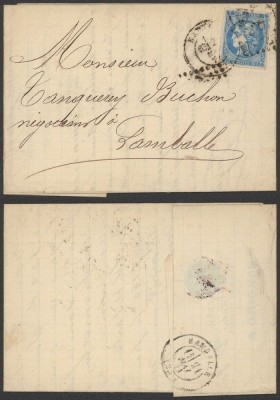 Monsieur
Tanquerey Buchon
négociant à
Lamballe